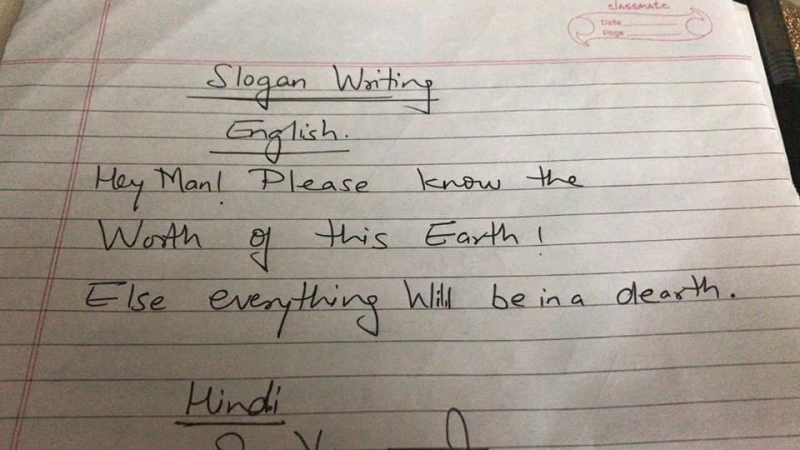 classmate
Date
Page
Slogan Writing
English.
Hey Man! Please know the
Worth of this Earth!
Else everything Will be in a dearth.
Hindi